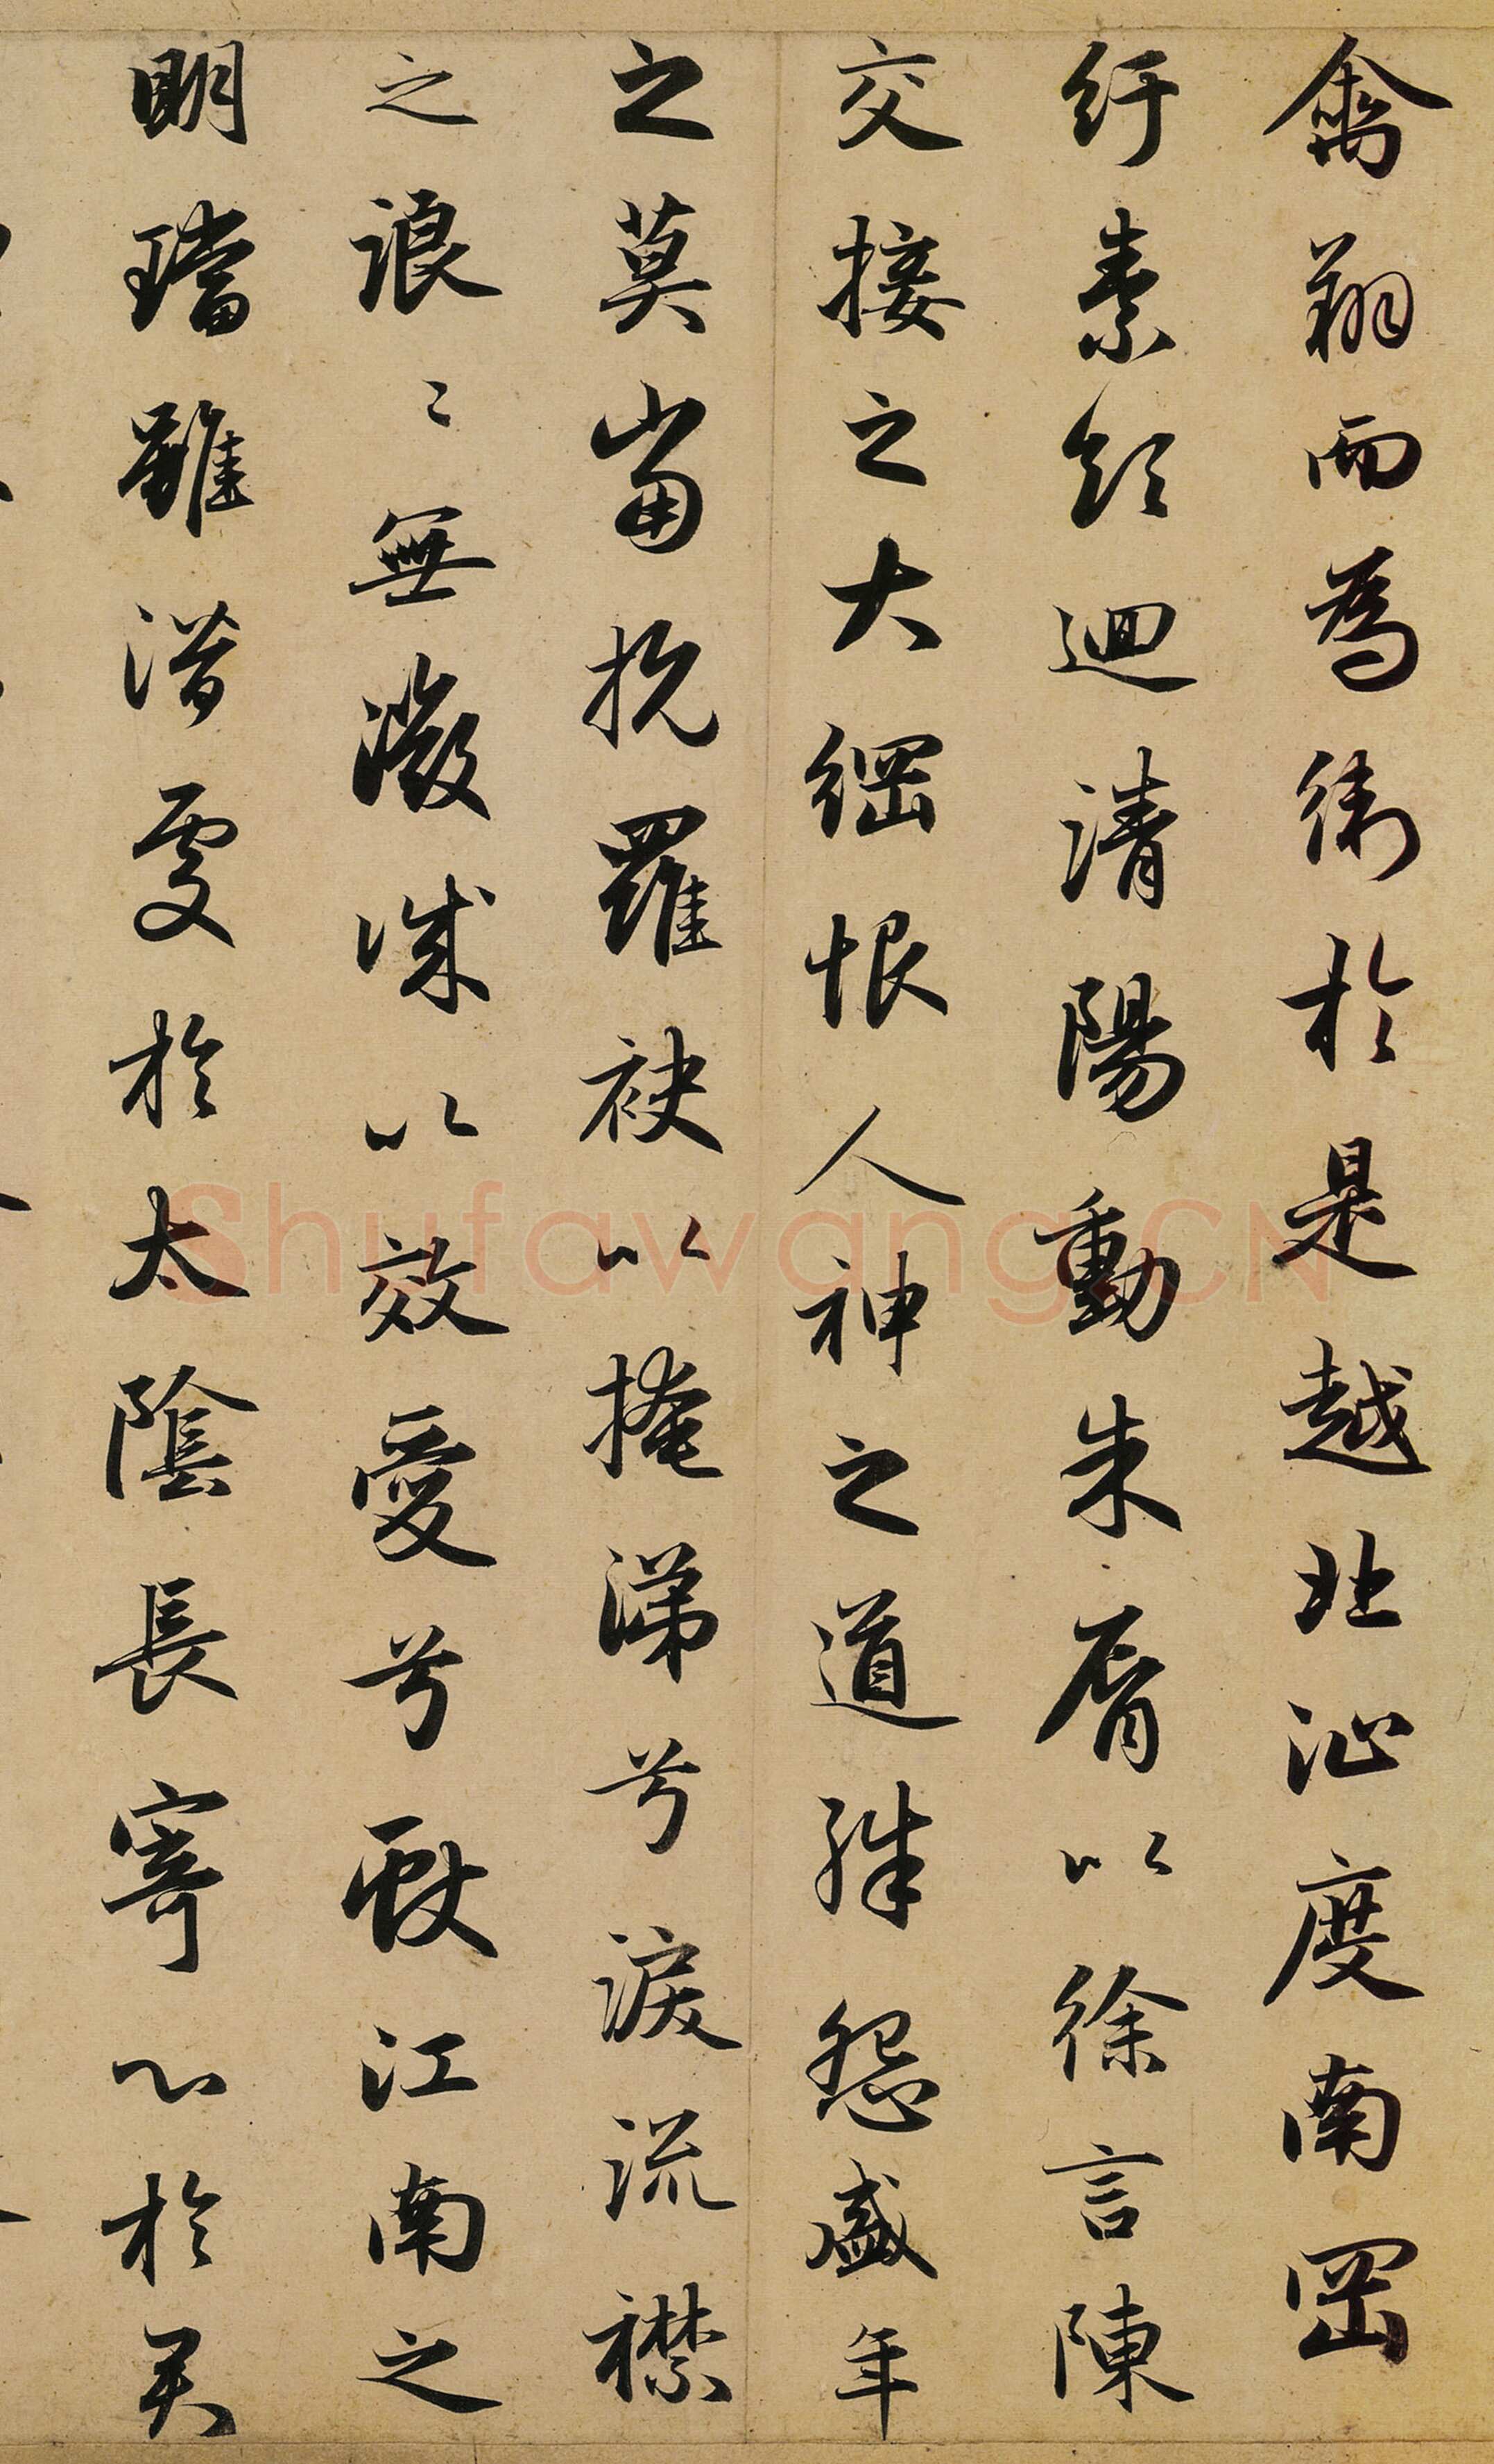 禽翔而為衛於是越北沚度南岡
紆素領迴清陽動朱脣以徐言陳
交接之大綱恨人神之道殊怨盛年
之莫當抗羅袂以掩涕兮淚流襟
之浪〻無微誠以效愛兮獻江南之
明璫雖潛處於太陰長寄心於君
Shufawang.CN